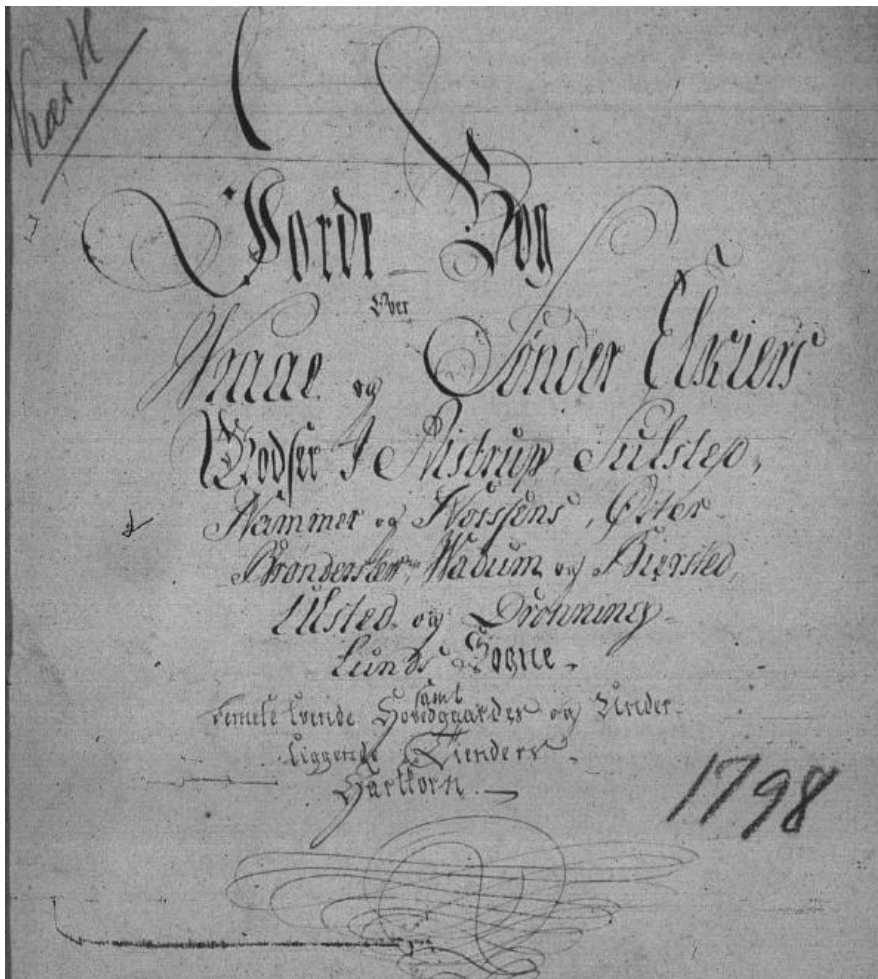 Kær H
Jorde Bog
Over
Wraae og Sønder Elkiers
Godser I Ajstrup, Sulstep,
Hammer og Horssens, Øster
Brønderslev, Wadum og Biersted,
Ulsted og Dronning
Lunds Sogne.
samt
bemelte tvende Hovedgaarder og Under
liggende Tienders
Hartkorn.
1798